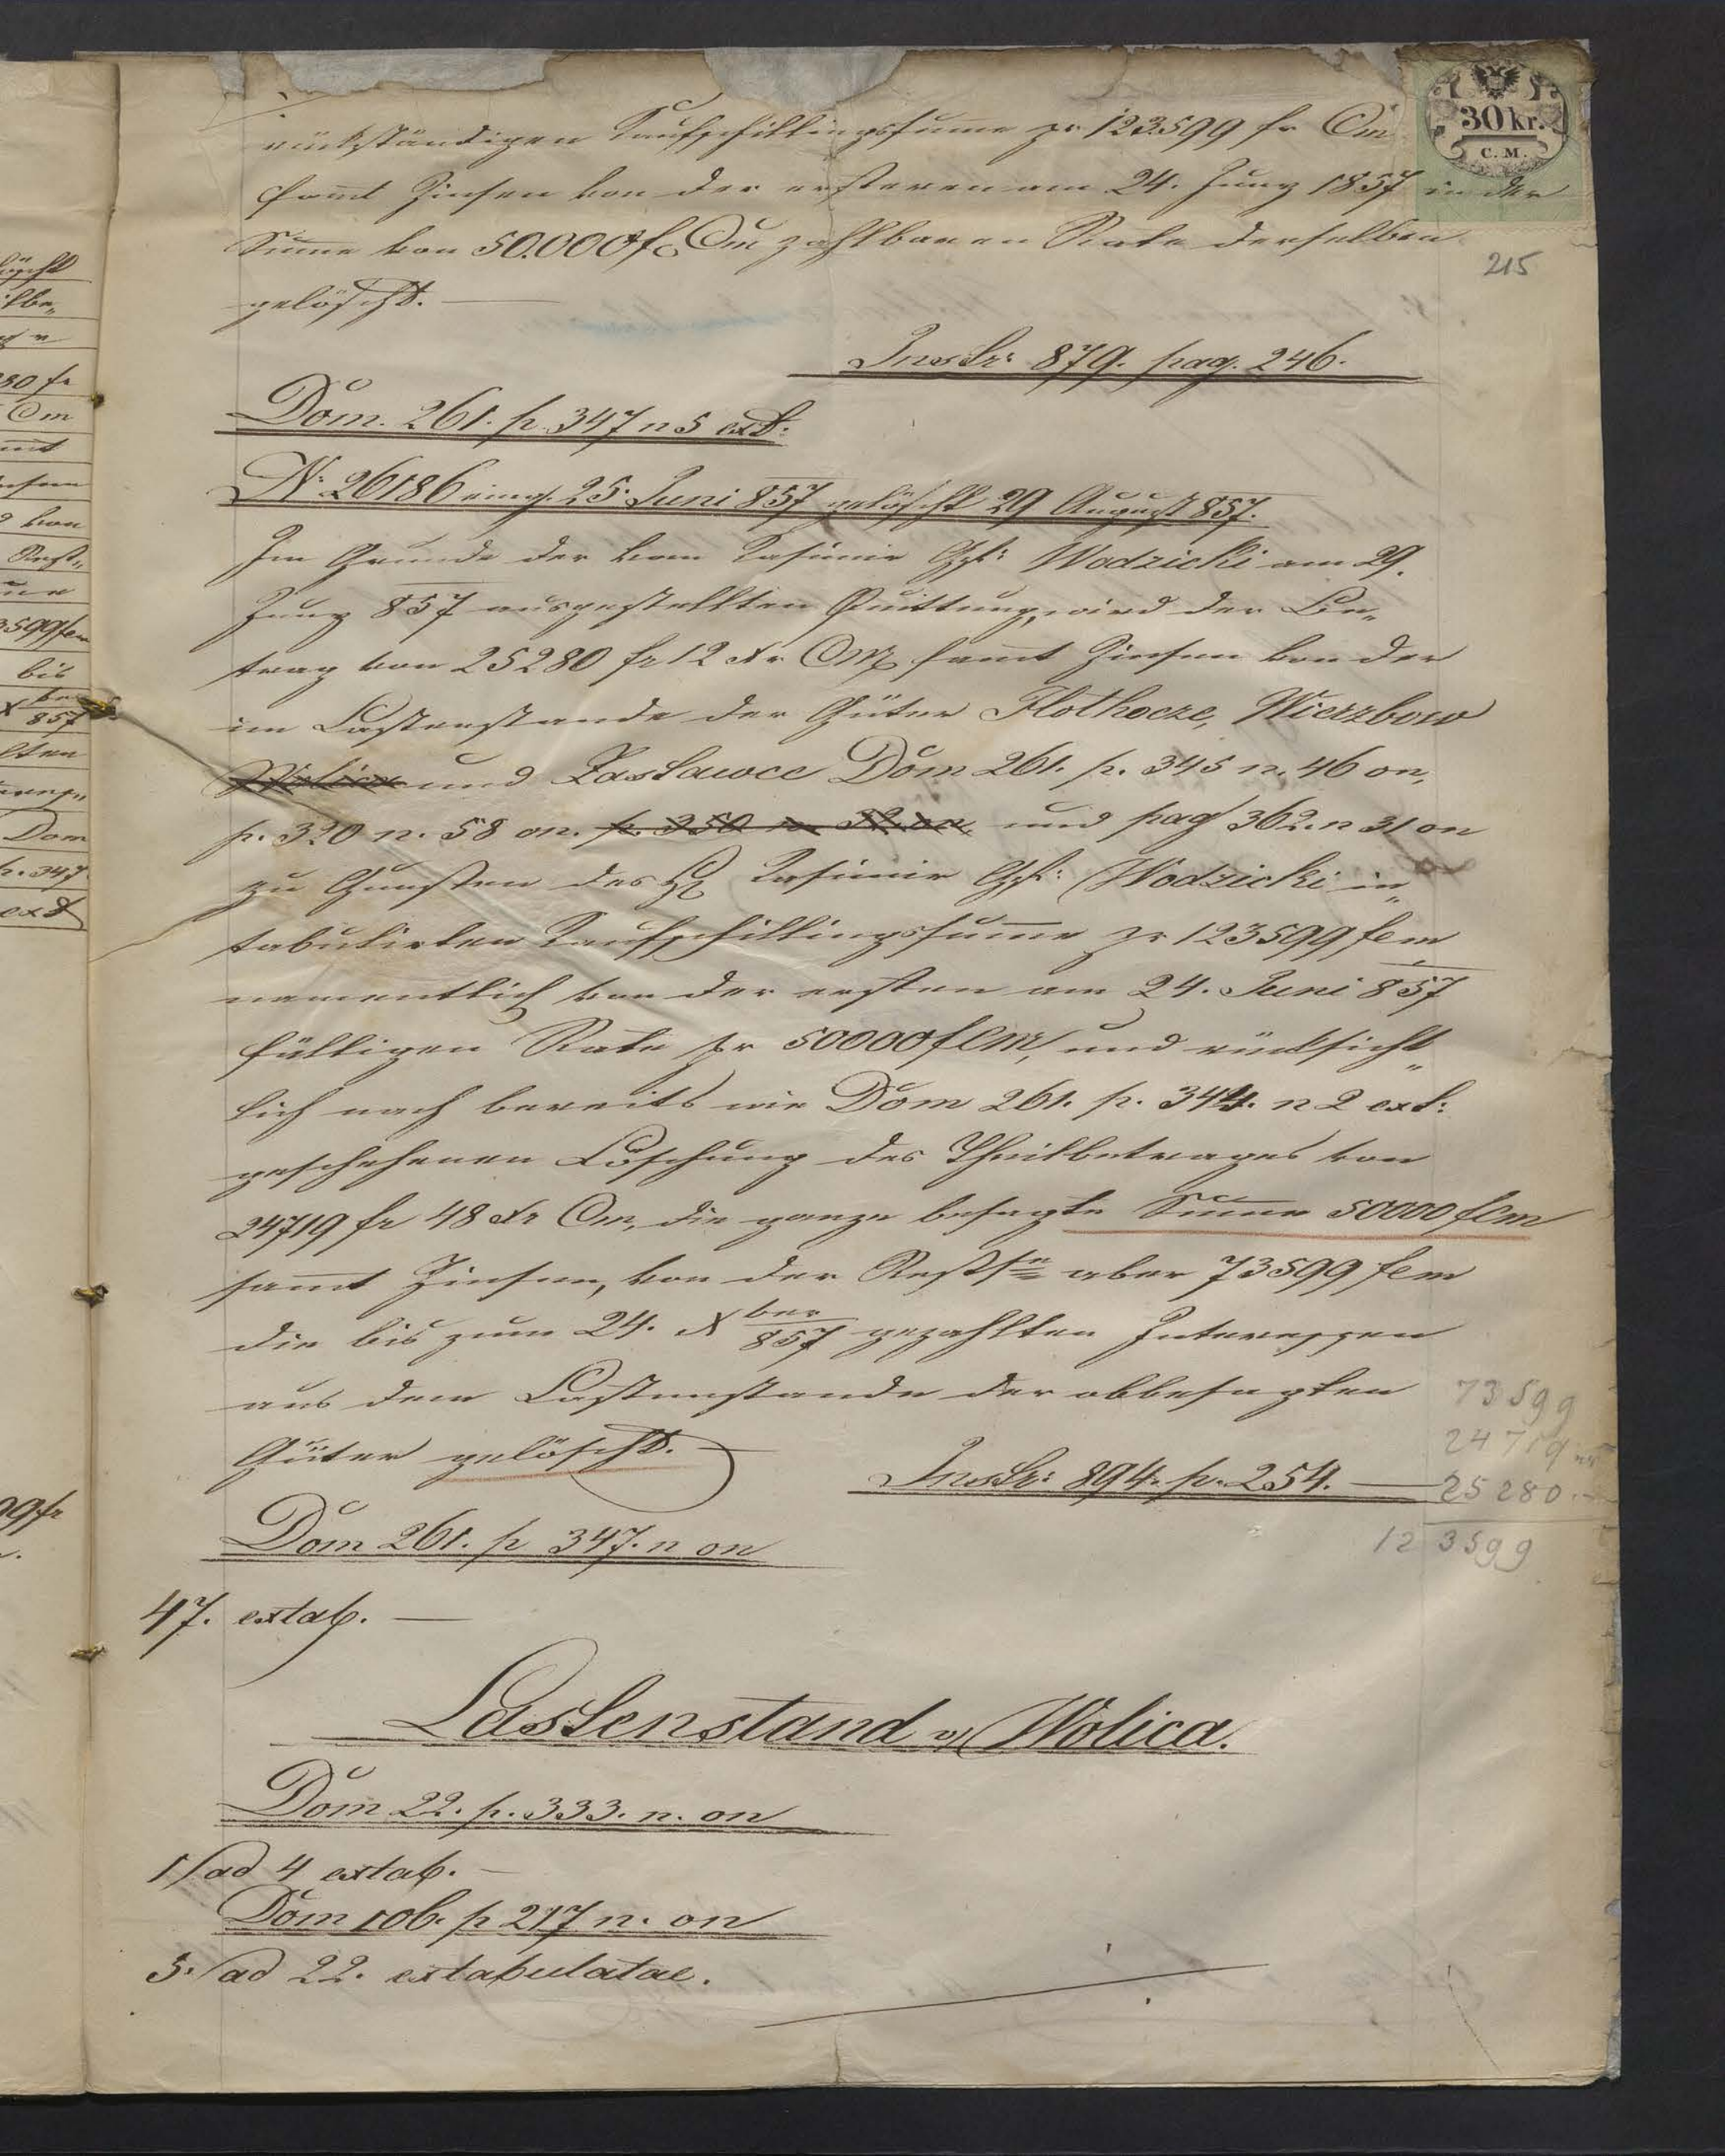 30 kr.
C. M.
rückständigen Kaufschillingssume pr 123599 fr Cm
samt Zinsen von der ersteren am 24. Juny 1857 in der
Sume von 50.000 f Cm zahlbaren Rate derselben
gelöscht. —
215
Instr: 879. pag. 246.
Dom. 261. p. 347 n 5 ext:
N: 26186 eing. 25. Juni 857 gelöscht 29 August 857.
Im Grunde der von Kasimir Gf: Wodzicki am 29.
Juny 857 ausgestellten Quittung, wird der Be„
trag von 25280 fr 12 xr CM samt Zinsen von der
im Lastenstande der Güter Hlothocze, Wierzbow
Wolica und Zaslawce Dom 261. p. 345 n. 46 on,
p. 320 n. 58 on. p. 350 n. 32 on, und pag 362. n 31 on
zu Gunsten des H Kasimir Gf: Wodzicki in„
tabulirten Kaufschillingssume pr 123599 fcm
namentlich von der ersten am 24. Juni 857
fälligen Rate pr 50000 fCm, und rücksicht„
lich nach bereits wie Dom 261. p. 344. n 2 ext:
geschehenen Löschung des Theilbetrages von
24719 fr 48 xr Cm, die ganze besagte Sume 50000 fCm
samt Zinsen, von der Rests aber 73599 fcm
die bis zum 24. X ber 857 gezahlten Interessen
aus dem Lastenstande der obbesagten
Güter gelöscht. —
73599
24719
25280.—
123599
Instr: 894. p. 254. —
Dom 261. p 347. n on
47. extab. —
Lastenstand v Wolica.
Dom 22. p. 333. n. on
1/ ad 4 extab. —
Dom 106. p 217 n. on
5./ ad 22. extabulatae.
80 fr
Cm
von
Rest„
3599 fcm
bis
857
Dom
p. 347
ext